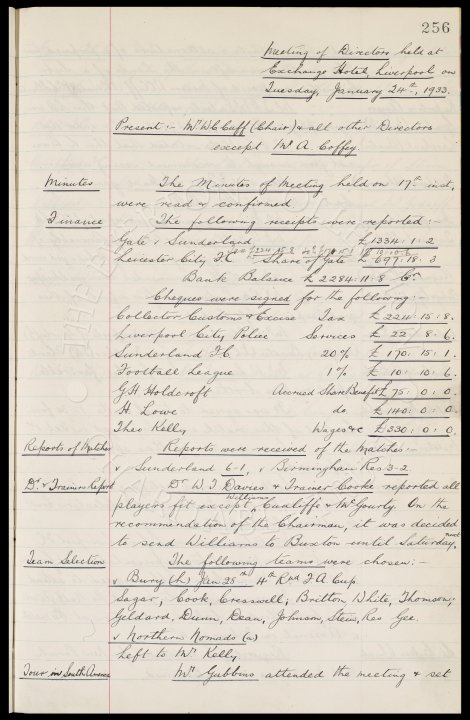 256
Meeting of Directors held at
Exchange Hotel, Liverpool on
Tuesday, January 24th, 1933.
Present :- Mr W C Cuff (Chair) & all other Directors
except Mr A. Coffey.
Minutes The Minutes of Meeting held on 17th inst,
were read & confirmed
Finance The following receipts were reported :-
Gate v Sunderland £1334 : 1 : 2
Leicester City F.C. Share of Gate £ 697 : 18 : 3
Bank Balance £ 2284 : 11 : 8 Cr
Cheques were signed for the following :-
Collector Customs & Excise Tax £ 224 : 15 : 8.
Liverpool City Police Services £ 22 : 8 : 6.
Sunderland F.C. 20% £ 170 : 15 : 1.
Football League 1% £ 10 : 10 : 6.
G H Holdcroft Accrued Share Benefit £ 75 : 0 : 0.
H. Lowe do. £ 140 : 0 : 0.
Theo Kelly Wages &c £ 330 : 0 : 0.
Reports of Matches Reports were received of the Matches :-
v Sunderland 6-1, v Birmingham Res 3-2.
Dr. & Trainers Report Dr W J Davies & Trainer Cooke reported all
players fit except Williams, Cunliffe & McGourty. On the
recommendation of the Chairman, it was decided
to send Williams to Buxton until Saturday next
Team Selection The following teams were chosen :-
v Bury (h) Jan 28th 4th Rnd F A Cup.
Sagar; Cook, Cresswell; Britton White, Thomson;
Geldard, Dunn, Dean, Johnson, Stein, Res Gee.
v Northern Nomads (a)
Left to Mr Kelly
Tour in South America Mr Gubbins attended the meeting & set